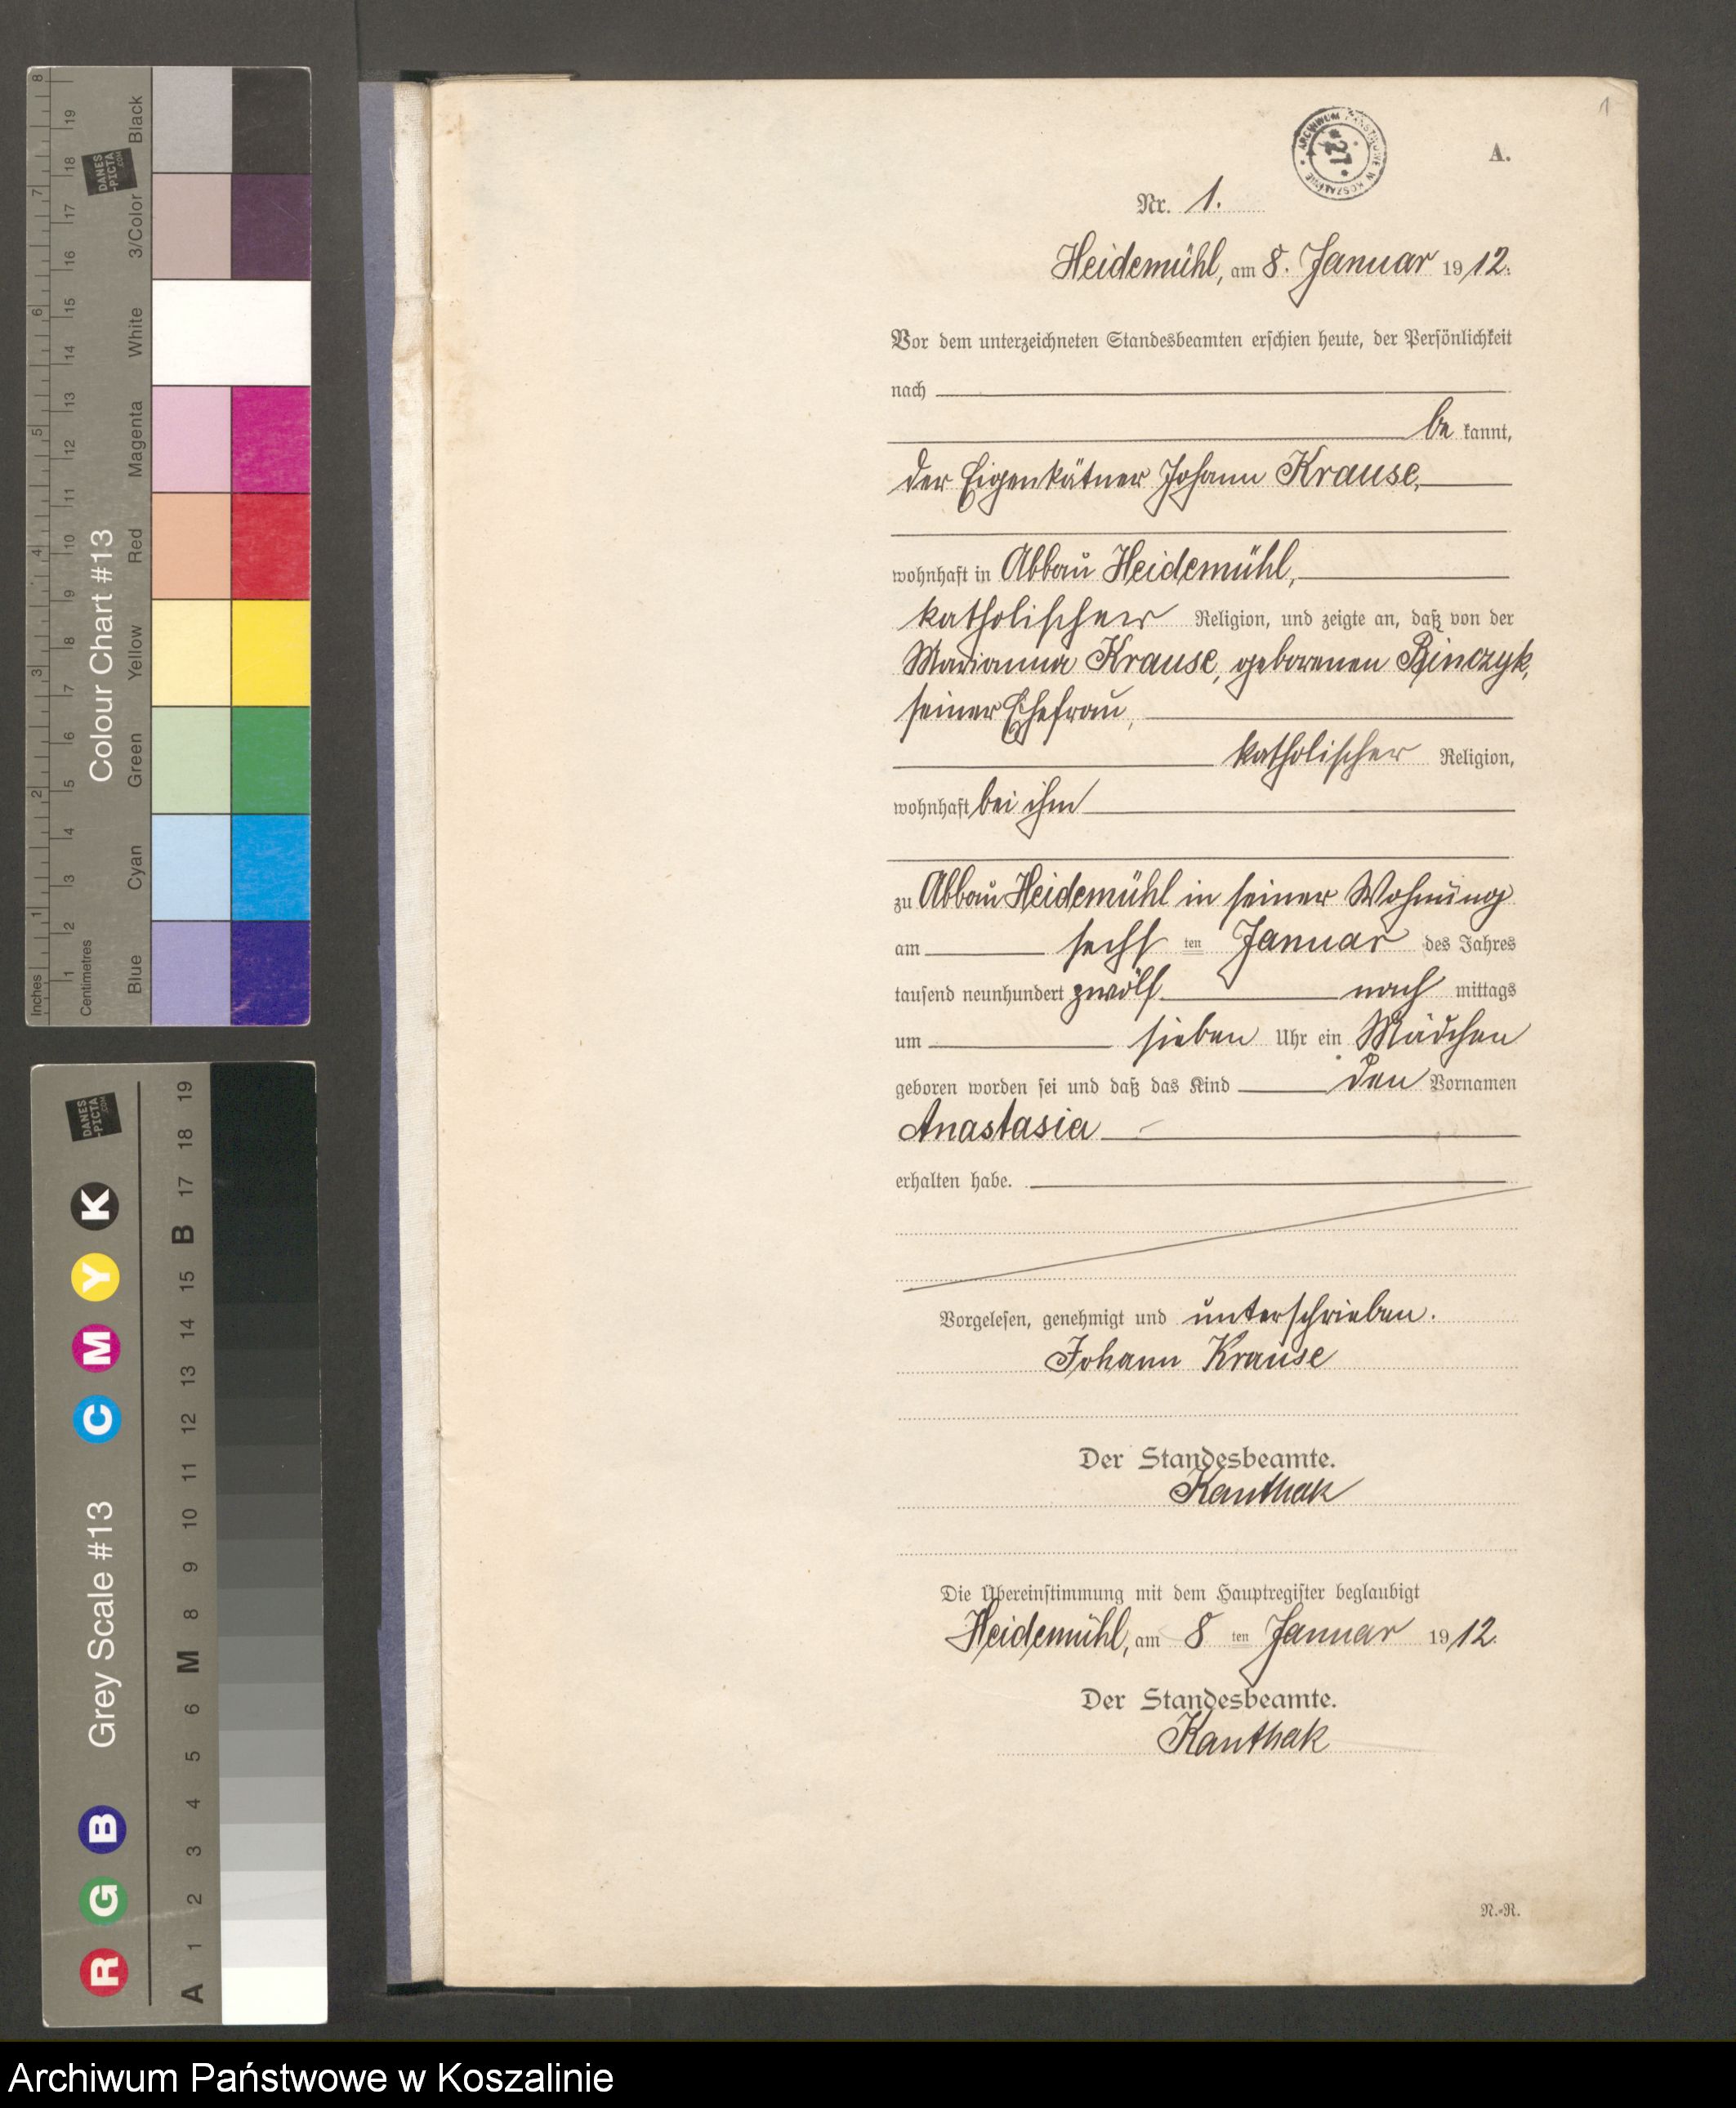 1
ARCHIWUM PAŃSTWOWE W KOSZALINIE
27
A.
Nr. 1.
Heidemühl, am 8. Januar 1912.
Vor dem unterzeichneten Standesbeamten erschien heute, der Persönlichkeit
nach
be kannt,
der Eigenkätner Johann Krause,
wohnhaft in Abbau Heidemühl,
katholischer Religion, und zeigte an, daß von der
Marianna Krause, geborenen Binczyk,
seiner Ehefrau,
katholischer Religion,
wohnhaft bei ihm
zu Abbau Heidemühl in seiner Wohnung
am sechs ten Januar des Jahres
tausend neunhundert zwölf nach mittags
um sieben Uhr ein Mädchen
geboren worden sei und daß das Kind den Vornamen
Anastasia
erhalten habe.
Vorgelesen, genehmigt und unterschrieben.
Johann Krause
Der Standesbeamte.
Kanthak
Die Übereinstimmung mit dem Hauptregister beglaubigt
Heidemühl, am 8 ten Januar 1912.
Der Standesbeamte.
Kanthak
N.-R.
Colour Chart #13
Inches 1 2 3 4 5 6 7 8
Centimetres 1 2 3 4 5 6 7 8 9 10 11 12 13 14 15 16 17 18 19
Blue Cyan Green Yellow Red Magenta White 3/Color Black
DANES
-PICTA
.COM
Grey Scale #13
R G B C M Y K
A 1 2 3 4 5 6 M 8 9 10 11 12 13 14 15 B 17 18 19
DANES
-PICTA
.COM
Archiwum Państwowe w Koszalinie